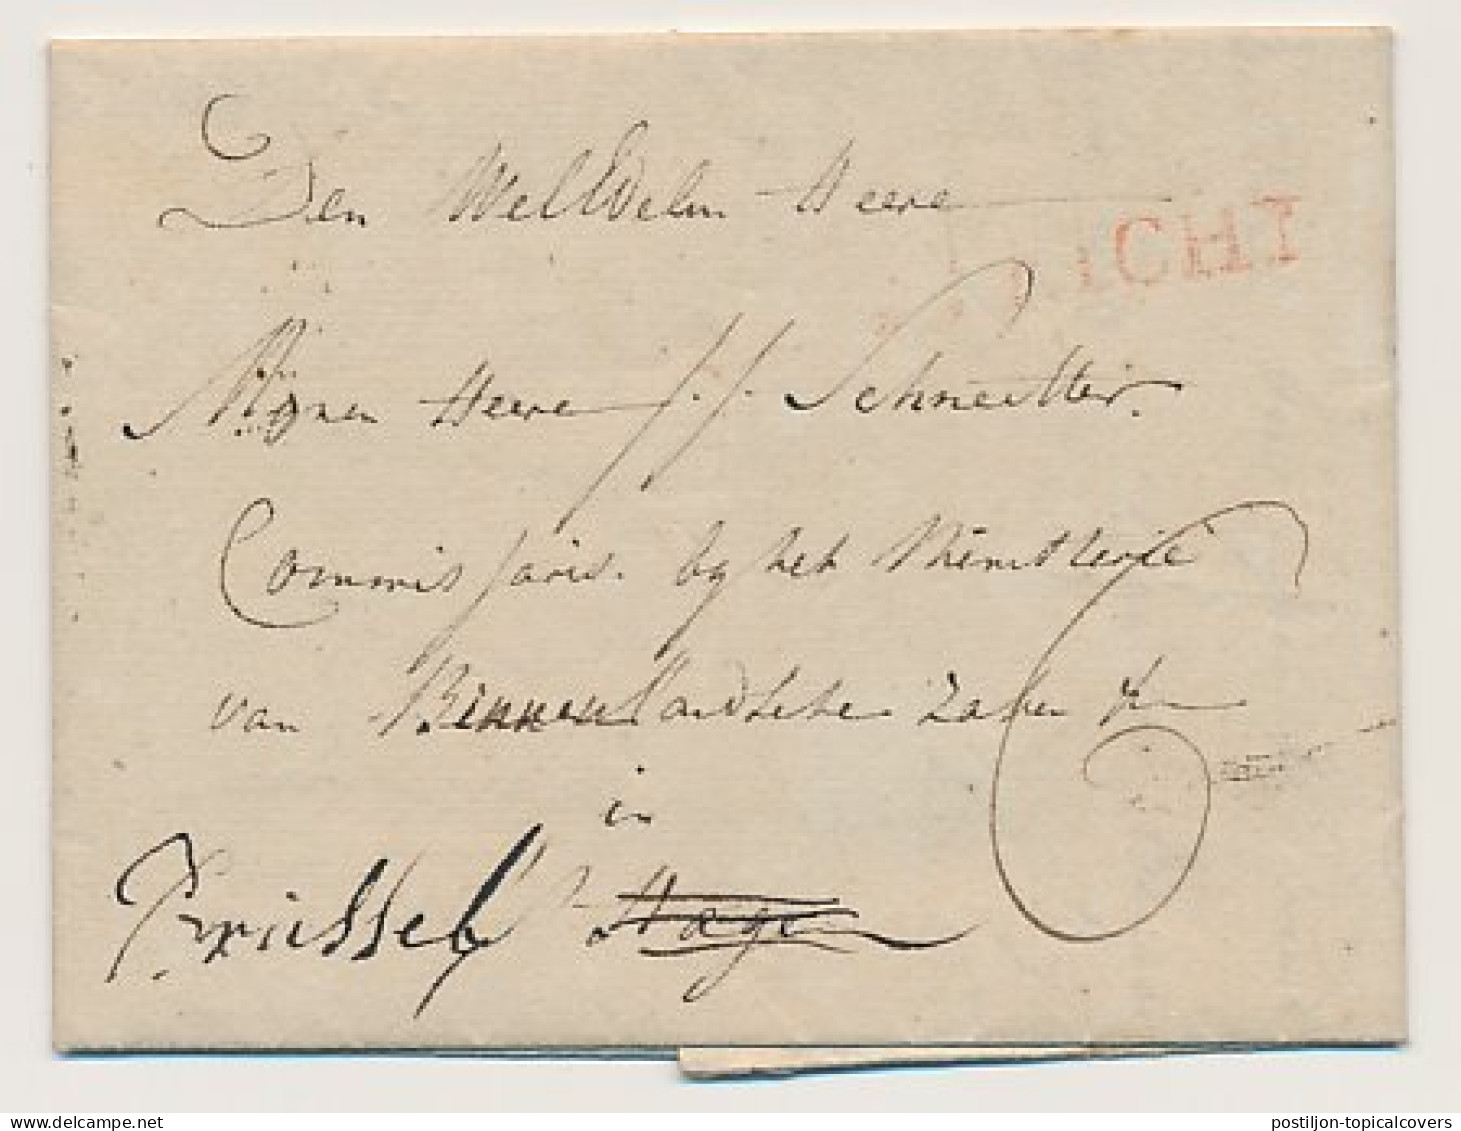 Den WelEdelen Heere
ICHT
Mijnen Heere J. J. Schneitter.
Commissaris. by het Ministerie
van Binnenlandsche Zaken
in
Brussel 's Hage
6
postiljon-topicalcovers